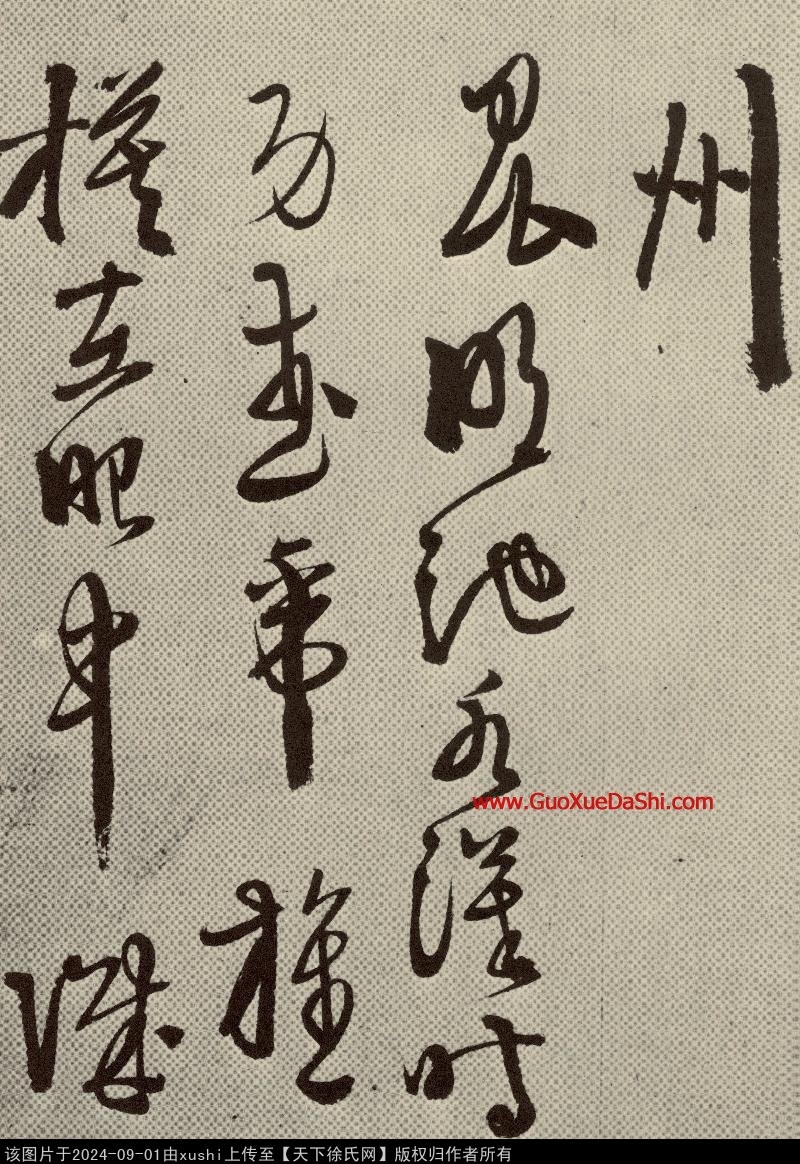 州
昆明池水漢時
功武帝旌
旗在眼中織
www.GuoXueDaShi.com
该图片于2024-09-01由xushi上传至【天下徐氏网】版权归作者所有